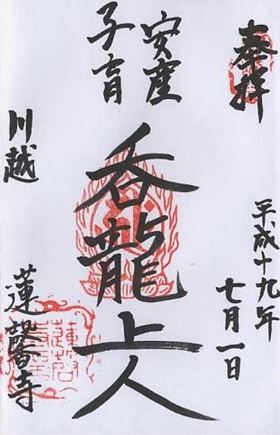 奉拝
平成十九年
七月一日
安産
子育
呑龍上人
川越
蓮馨寺